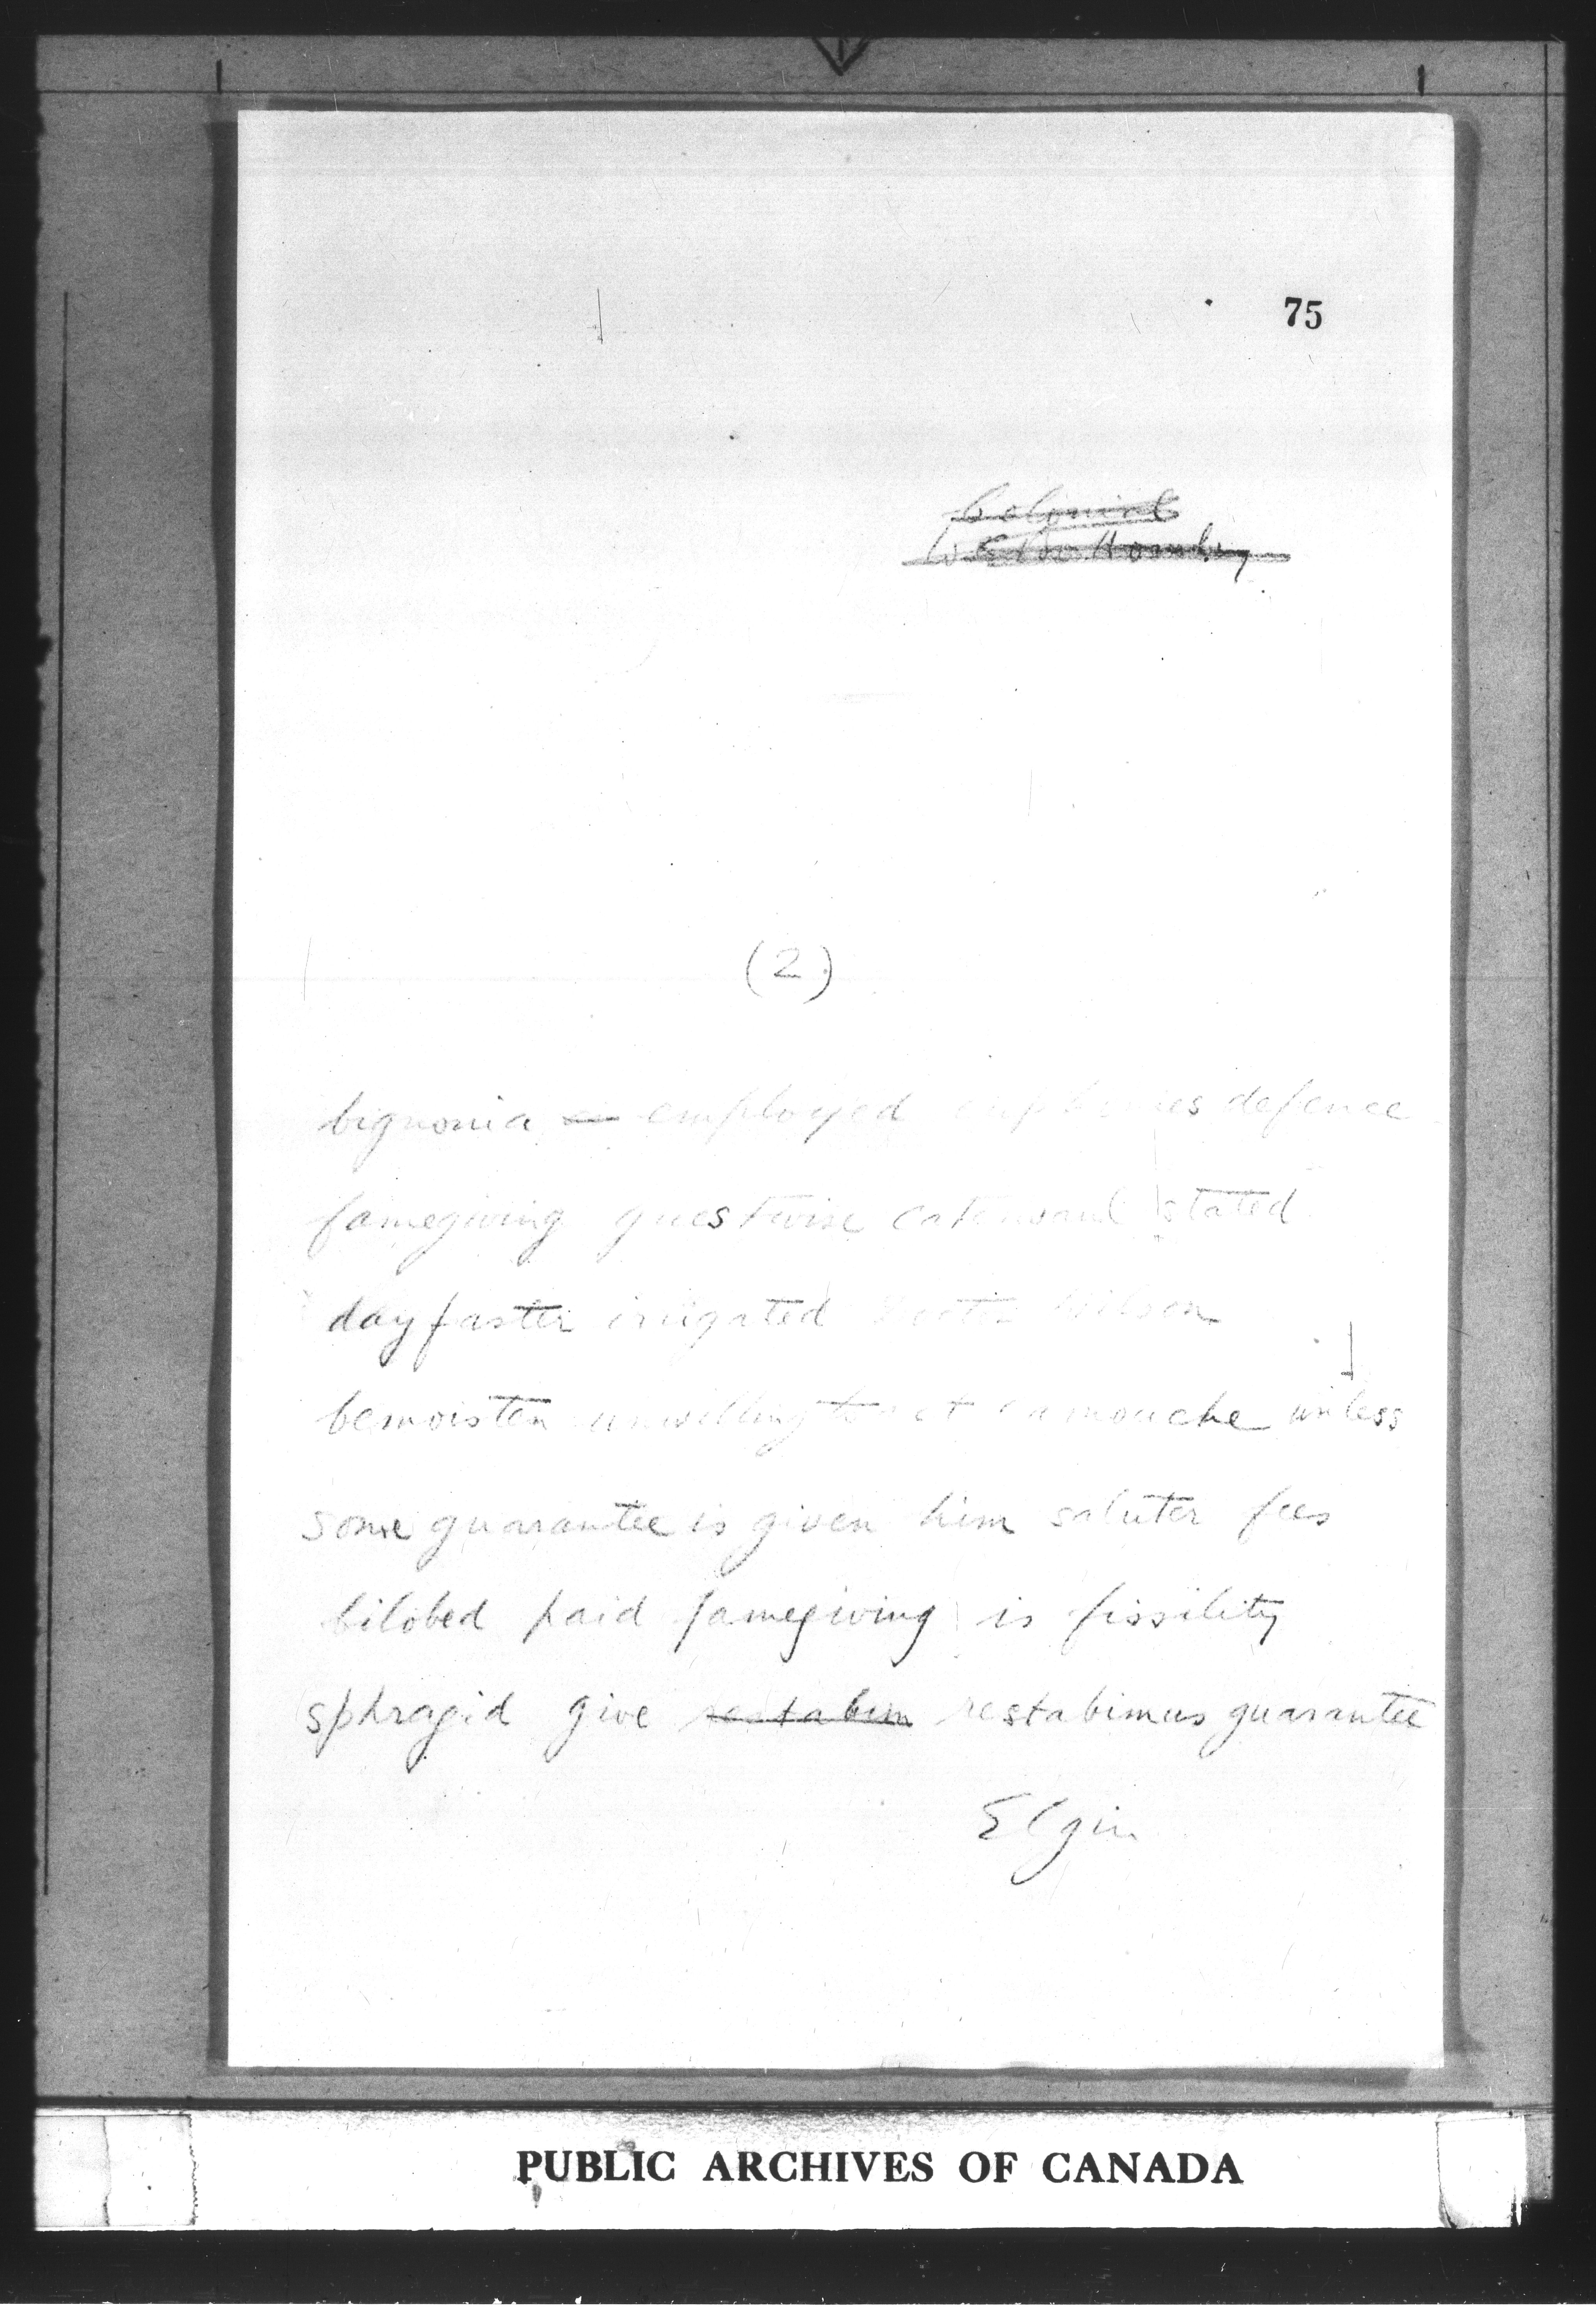 75
Colonial
(2)
bignonia employed defence
famegiving guestwise stated
dayfaster irrigated Wilson
bemoisten unwilling to act camouche unless
some guarantee is given him saluter fees
bilobed paid famegiving is fissility
sphragid give restabim restabimus guarantee
Elgin
PUBLIC ARCHIVES OF CANADA